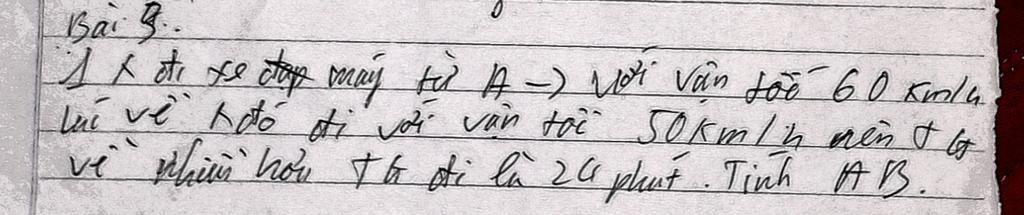 Bài 3..
1 x đi xe máy từ A -> với vận tốc 60 km/h
lúc về x đó đi với vận tốc 50km/h nên TG
về nhiều hơn TG đi là 24 phút. Tính AB.